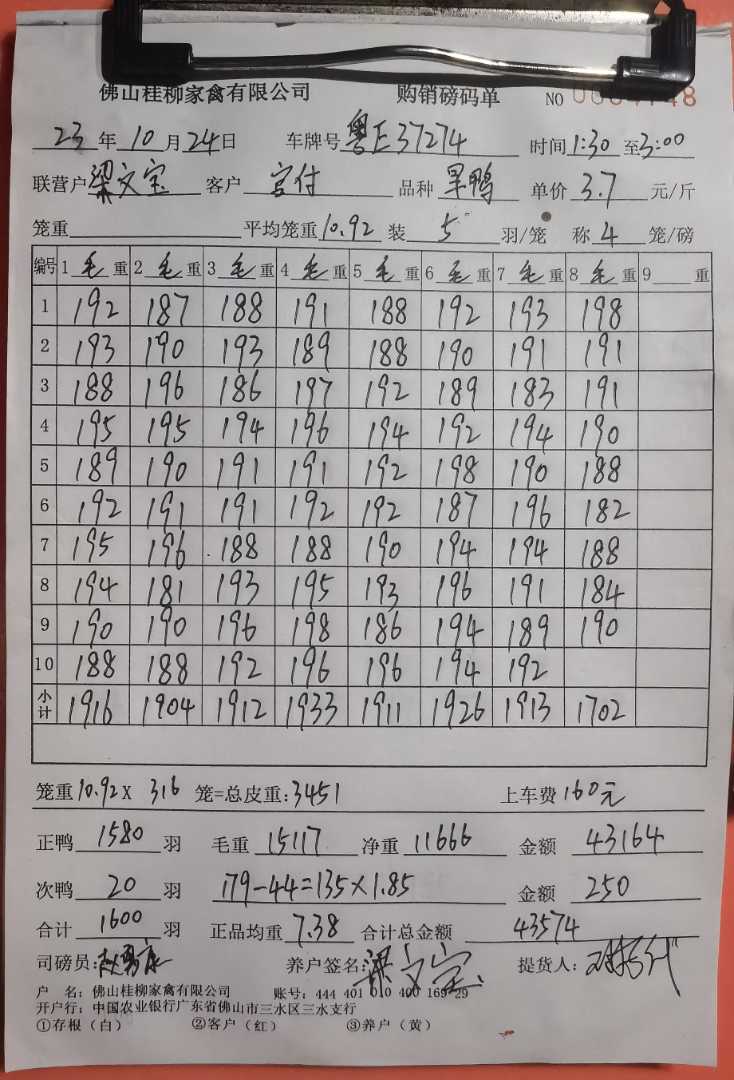 佛山桂柳家禽有限公司 购销磅码单 NO
23年10月24日 车牌号粤E37274 时间1:30至3:00
联营户梁文宝 客户宫付 品种旱鸭 单价3.7元/斤
笼重 平均笼重10.92装5羽/笼 称4笼/磅
编号 1毛重 2毛重 3毛重 4毛重 5毛重 6毛重 7毛重 8毛重 9重
1 192 187 188 191 188 192 193 198
2 193 190 193 189 188 190 191 191
3 188 196 186 197 192 189 183 191
4 195 195 194 196 194 192 194 190
5 189 190 191 191 192 198 190 188
6 192 191 191 192 192 187 196 182
7 195 196 188 188 190 194 194 188
8 194 181 193 195 193 196 191 184
9 190 190 196 198 186 194 189 190
10 188 188 192 196 196 194 192
小计 1916 1904 1912 1933 1911 1926 1913 1702
笼重10.92X 316笼=总皮重:3451 上车费160元
正鸭1580羽 毛重15117 净重11666 金额43164
次鸭20羽 179-44=135×1.85 金额250
合计1600羽 正品均重7.38 合计总金额43574
司磅员: 养户签名:梁文宝 提货人:
户 名:佛山桂柳家禽有限公司 账号:444 401 010 400 169 29
开户行:中国农业银行广东省佛山市三水区三水支行
①存根(白) ②客户(红) ③养户(黄)